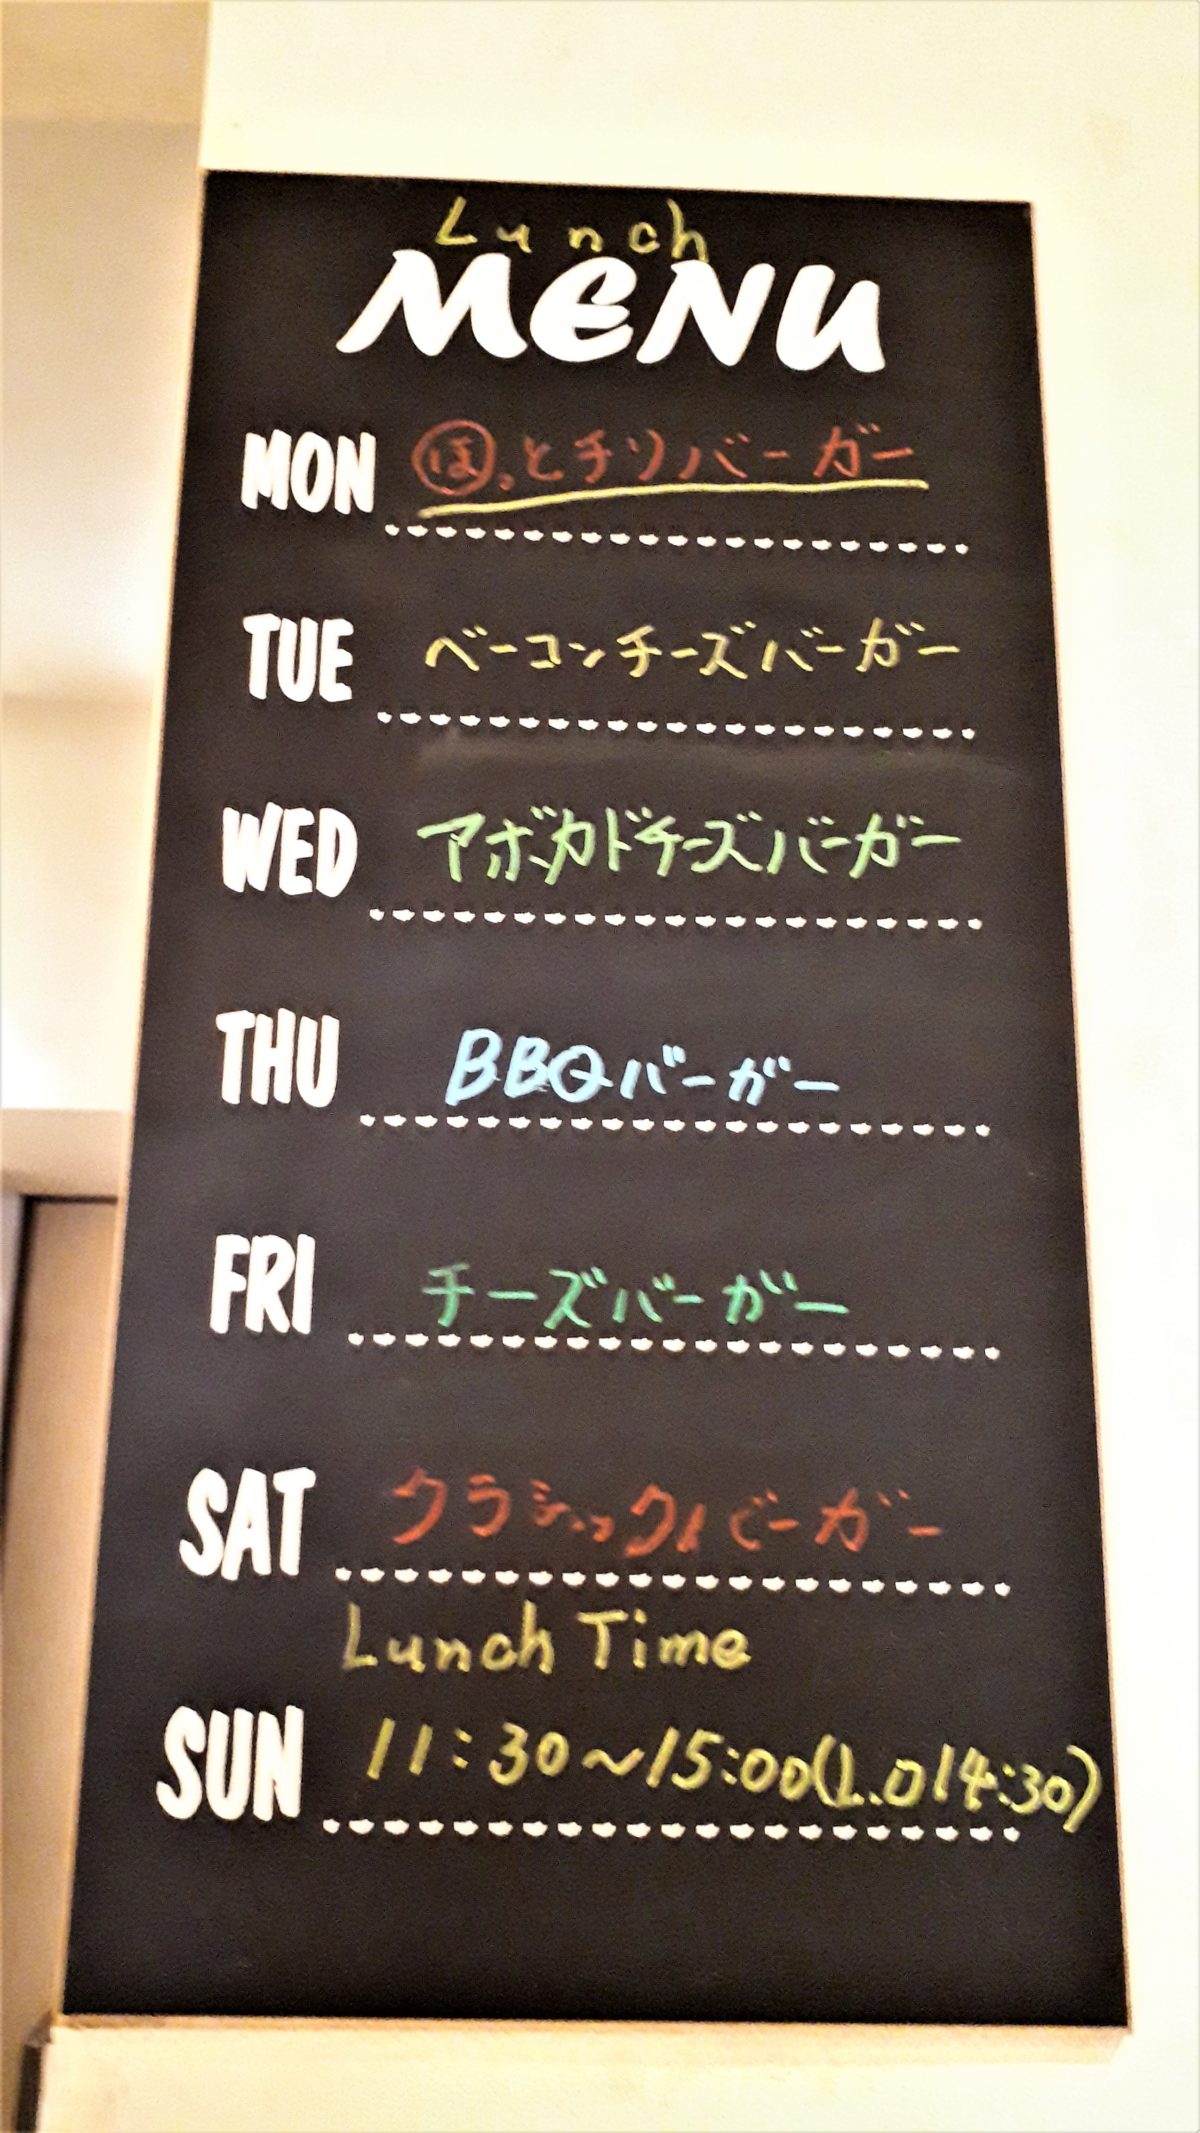 Lunch
MENU
MON ほっとチリバーガー
TUE ベーコンチーズバーガー
WED アボカドチーズバーガー
THU BBQバーガー
FRI チーズバーガー
SAT クラシックバーガー
Lunch Time
SUN 11:30~15:00(L.O 14:30)